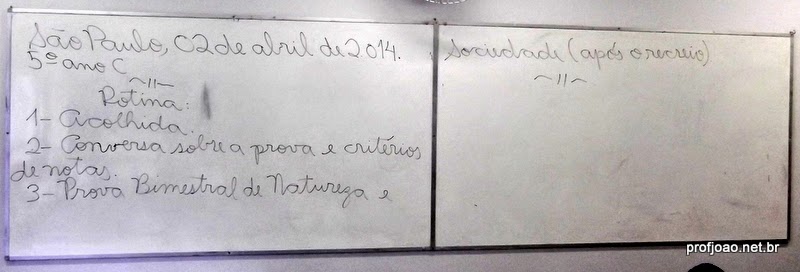 São Paulo, 02 de abril de 2014.
5º ano C
~11~
Rotina:
1- Acolhida.
2- Conversa sobre a prova e critérios
de notas.
3- Prova Bimestral de Natureza e
Sociedade (após o recreio)
~11~
profjoao.net.br